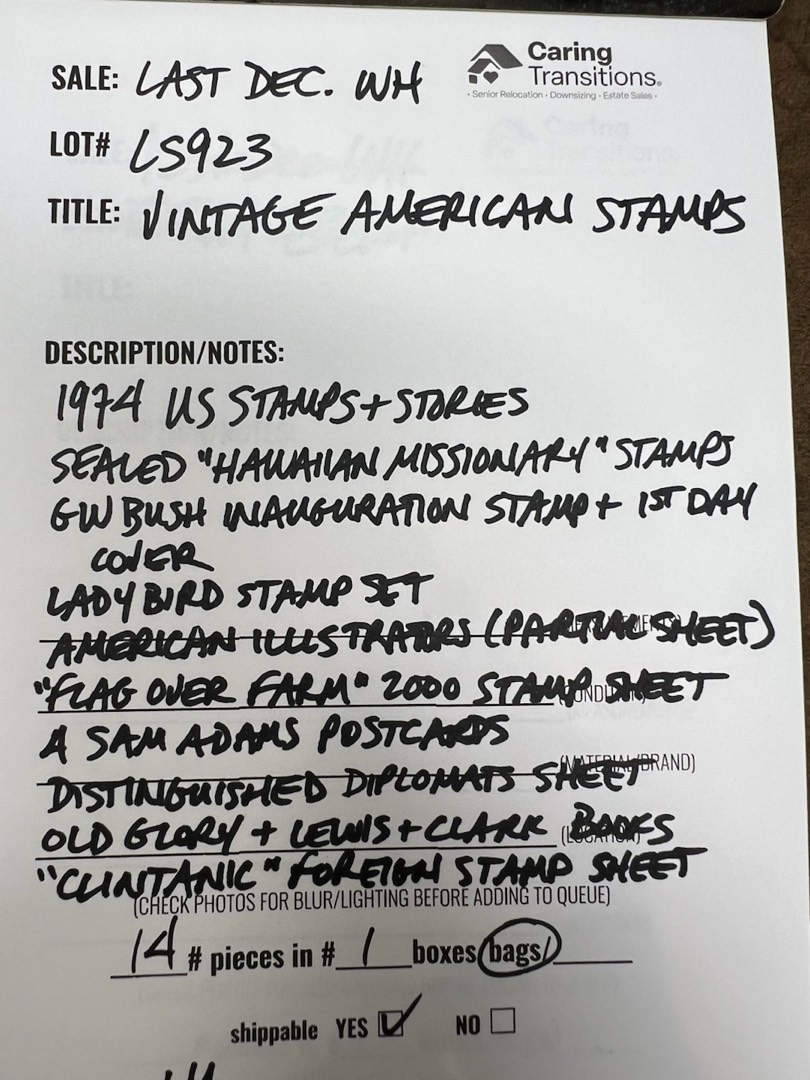 Caring
Transitions®
• Senior Relocation • Downsizing • Estate Sales •
SALE: LAST DEC. WH
LOT# LS923
TITLE: VINTAGE AMERICAN STAMPS
DESCRIPTION/NOTES:
1974 US STAMPS + STORIES
SEALED "HAWAIIAN MISSIONARY" STAMPS
GW BUSH INAUGURATION STAMP + 1ST DAY
COVER
LADY BIRD STAMP SET
AMERICAN ILLUSTRATORS (PARTIAL SHEET)
"FLAG OVER FARM" 2000 STAMP SHEET
4 SAM ADAMS POSTCARDS
(MATERIAL/BRAND)
DISTINGUISHED DIPLOMATS SHEET
OLD GLORY + LEWIS + CLARK BOOKS
(LOCATION)
"CLINTANIC" FOREIGN STAMP SHEET
(CHECK PHOTOS FOR BLUR/LIGHTING BEFORE ADDING TO QUEUE)
14 # pieces in # 1 boxes/bags/
shippable YES ☑ NO ☐